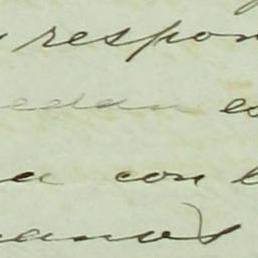 respon
edan es
a con l
anos